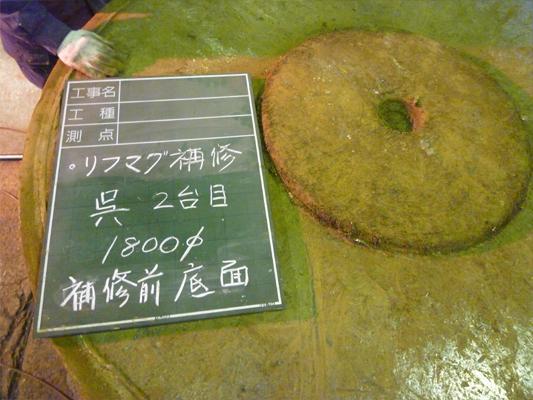 工事名
工種
測点
・リフマグ補修
呉 2台目
1800φ
補修前 底面